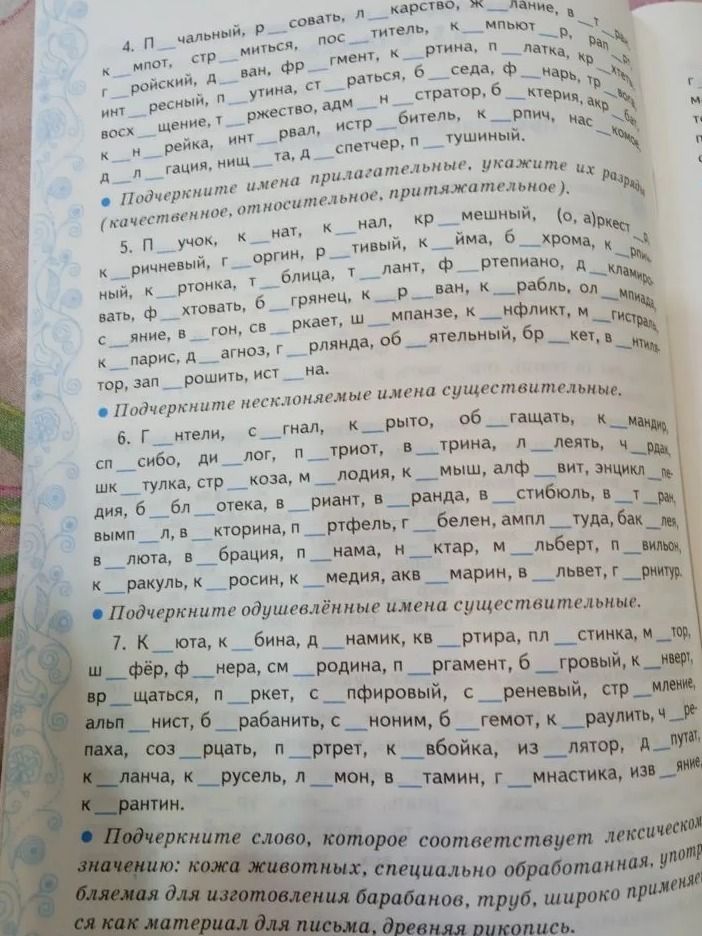 4. П__чальный, р__совать, л__карство, ж__лание, в__т__ран,
к__мпот, стр__миться, пос__титель, к__мпьют__р, рап__р
г__ройский, д__ван, фр__гмент, к__ртина, п__латка, кр__хтеть
инт__ресный, п__утина, ст__раться, б__седа, ф__нарь, тр__вога,
восх__щение, т__ржество, адм__н__стратор, б__ктерия, акр__бат,
к__н__рейка, инт__рвал, истр__битель, к__рпич, нас__комое,
д__л__гация, нищ__та, д__спетчер, п__тушиный.
• Подчеркните имена прилагательные, укажите их разряды
(качественное, относительное, притяжательное).
5. П__учок, к__нат, к__нал, кр__мешный, (о, а)ркест__р,
к__ричневый, г__оргин, р__тивый, к__йма, б__хрома, к__рпич-
ный, к__ртонка, т__блица, т__лант, ф__ртепиано, д__кламиро-
вать, ф__хтовать, б__грянец, к__р__ван, к__рабль, ол__мпиада,
с__яние, в__гон, св__ркает, ш__мпанзе, к__нфликт, м__гистраль,
к__парис, д__агноз, г__рлянда, об__ятельный, бр__кет, в__нтиля-
тор, зап__рошить, ист__на.
• Подчеркните несклоняемые имена существительные.
6. Г__нтели, с__гнал, к__рыто, об__гащать, к__мандир,
сп__сибо, ди__лог, п__триот, в__трина, л__леять, ч__рдак,
шк__тулка, стр__коза, м__лодия, к__мыш, алф__вит, энцикл__пе-
дия, б__бл__отека, в__риант, в__ранда, в__стибюль, в__т__ран,
вымп__л, в__кторина, п__ртфель, г__белен, ампл__туда, бак__лея,
в__люта, в__брация, п__нама, н__ктар, м__льберт, п__вильон,
к__ракуль, к__росин, к__медия, акв__марин, в__львет, г__рнитур.
• Подчеркните одушевлённые имена существительные.
7. К__юта, к__бина, д__намик, кв__ртира, пл__стинка, м__тор,
ш__фёр, ф__нера, см__родина, п__ргамент, б__гровый, к__нверт,
вр__щаться, п__ркет, с__пфировый, с__реневый, стр__мление,
альп__нист, б__рабанить, с__ноним, б__гемот, к__раулить, ч__ре-
паха, соз__рцать, п__ртрет, к__вбойка, из__лятор, д__путат,
к__ланча, к__русель, л__мон, в__тамин, г__мнастика, изв__яние,
к__рантин.
• Подчеркните слово, которое соответствует лексическом
значению: кожа животных, специально обработанная, употр
бляемая для изготовления барабанов, труб, широко применяе
ся как материал для письма, древняя рукопись.